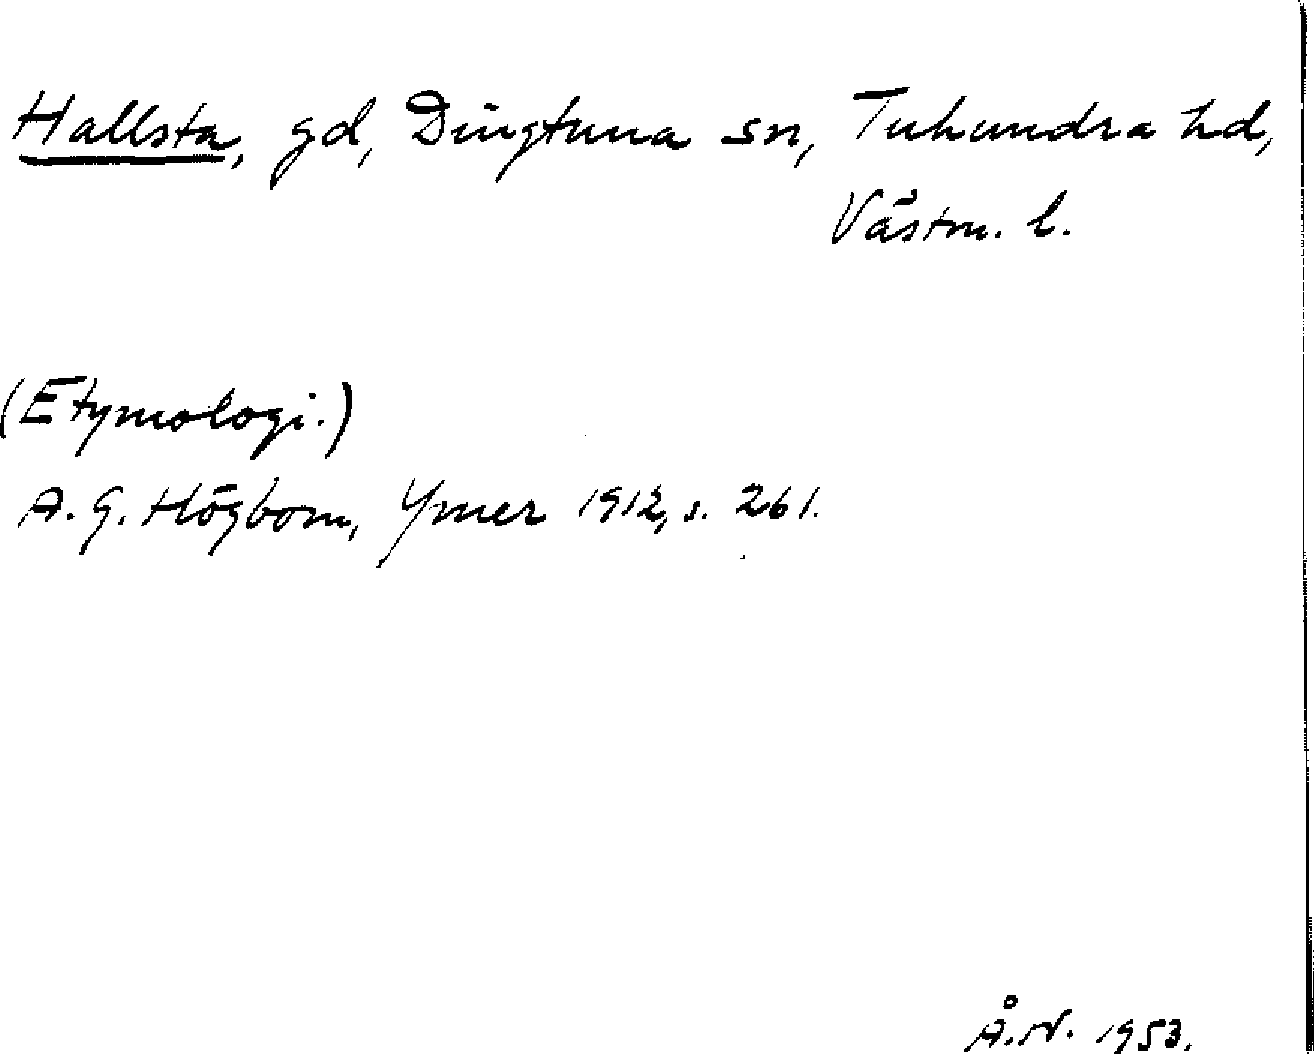 Hallsta, gd, Dingtuna sn, Tuhundra hd,
Västm. l.
(Etymologi.)
A. G. Högbom, Ymer 1912, s. 261.
Å. N. 1953.